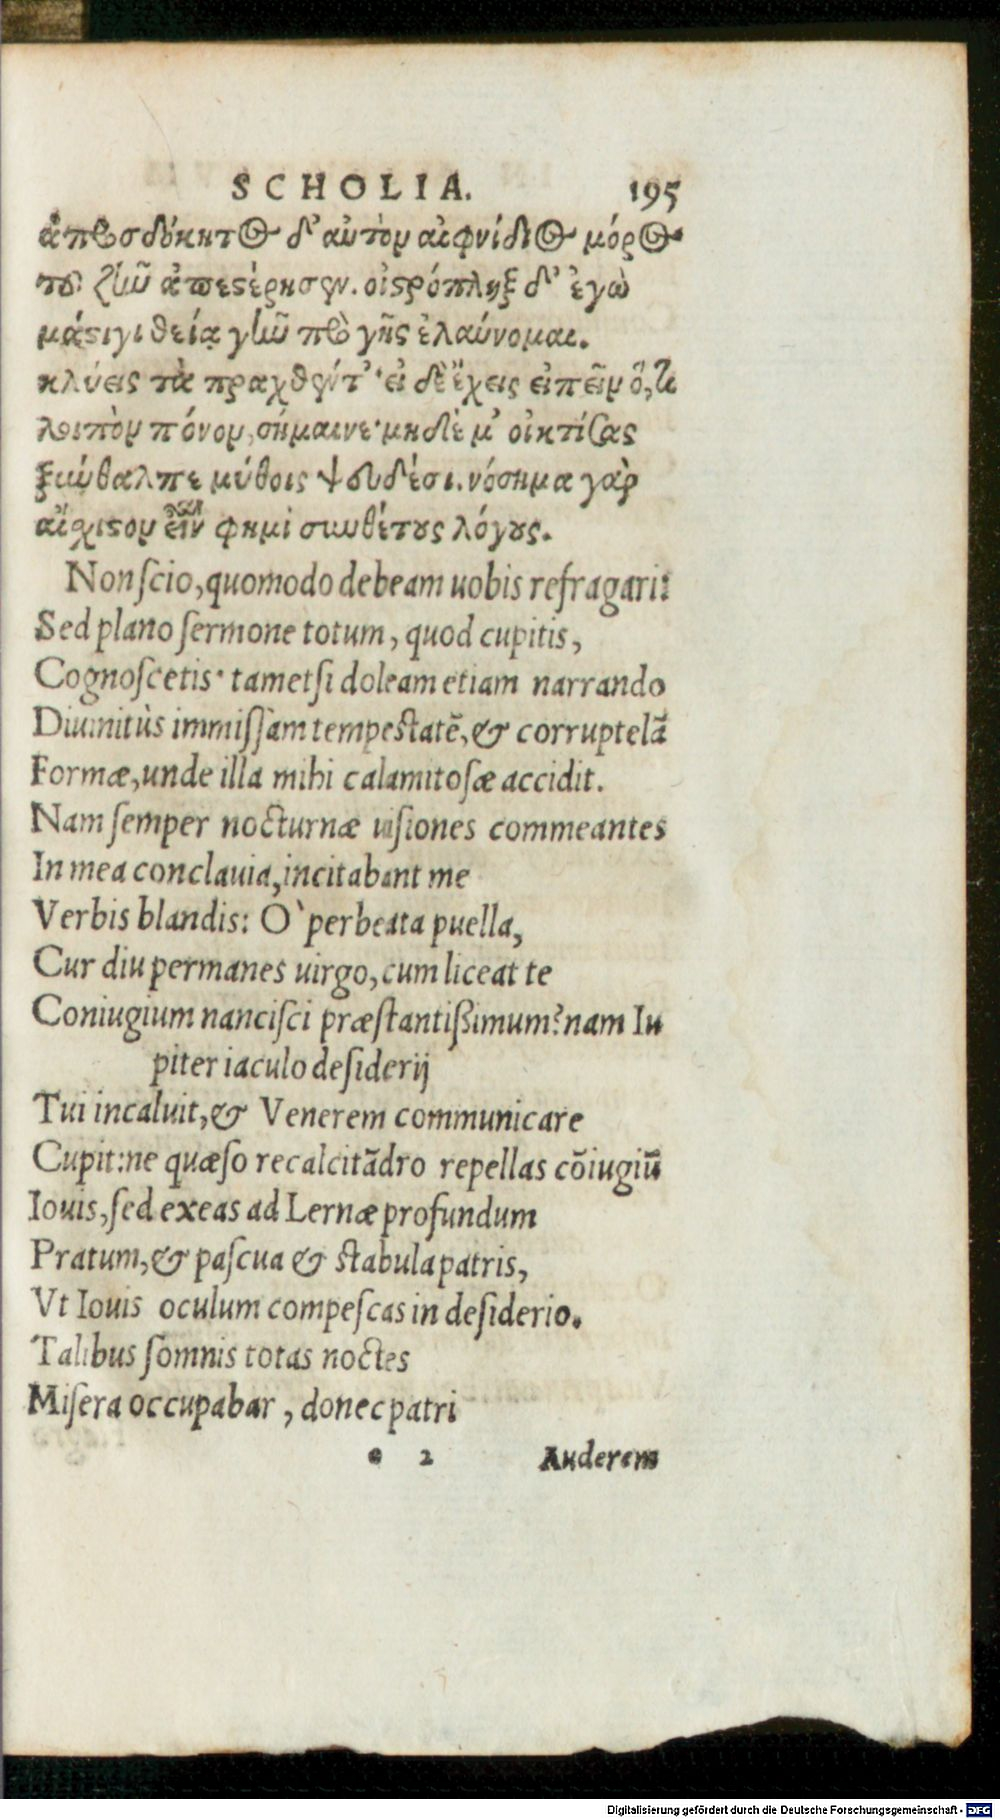 SCHOLIA. 195
ἀπροσδόκητος δ' αὐτὸν αἰφνίδιος μόρος
τοῦ ζῆν ἀπεστέρησεν. οἰστρόπληξ δ' ἐγὼ
μάστιγι θείᾳ γῆν πρὸ γῆς ἐλαύνομαι.
κλύεις τὰ πραχθέντ'· εἰ δὲ ἔχεις εἰπεῖν ὅ, τι
λοιπὸν πόνον, σήμαινε· μηδὲ μ' οἰκτίσας
ξύνθαλπε μύθοις ψευδέσι. νόσημα γὰρ
αἴσχιστον εἶναι φημὶ συνθέτους λόγους.
Non scio, quomodo debeam uobis refragari:
Sed plano sermone totum, quod cupitis,
Cognoscetis· tametsi doleam etiam narrando
Diuinitùs immissam tempestatē, & corruptelā
Formæ, unde illa mihi calamitosæ accidit.
Nam semper nocturnæ uisiones commeantes
In mea conclauia, incitabant me
Verbis blandis: Ò perbeata puella,
Cur diu permanes uirgo, cum liceat te
Coniugium nancisci præstantißimum? nam Iu
piter iaculo desiderij
Tui incaluit, & Venerem communicare
Cupit: ne quæso recalcitādro repellas cōiugiū
Iouis, sed exeas ad Lernæ profundum
Pratum, & pascua & stabula patris,
Vt Iouis oculum compescas in desiderio.
Talibus somnis totas noctes
Misera occupabar, donec patri
e 2 Auderem
Digitalisierung gefördert durch die Deutsche Forschungsgemeinschaft - DFG